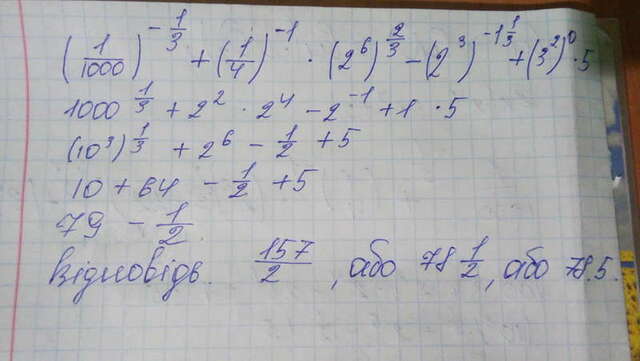 (1/1000)^(-1/3) + (1/4)^(-1) · (2^6)^(2/3) - (2^3)^(-1 1/3) + (3^2)^0 · 5
1000^(1/3) + 2^2 · 2^4 - 2^(-1) + 1 · 5
(10^3)^(1/3) + 2^6 - 1/2 + 5
10 + 64 - 1/2 + 5
79 - 1/2
Відповідь. 157/2, або 78 1/2, або 78.5.